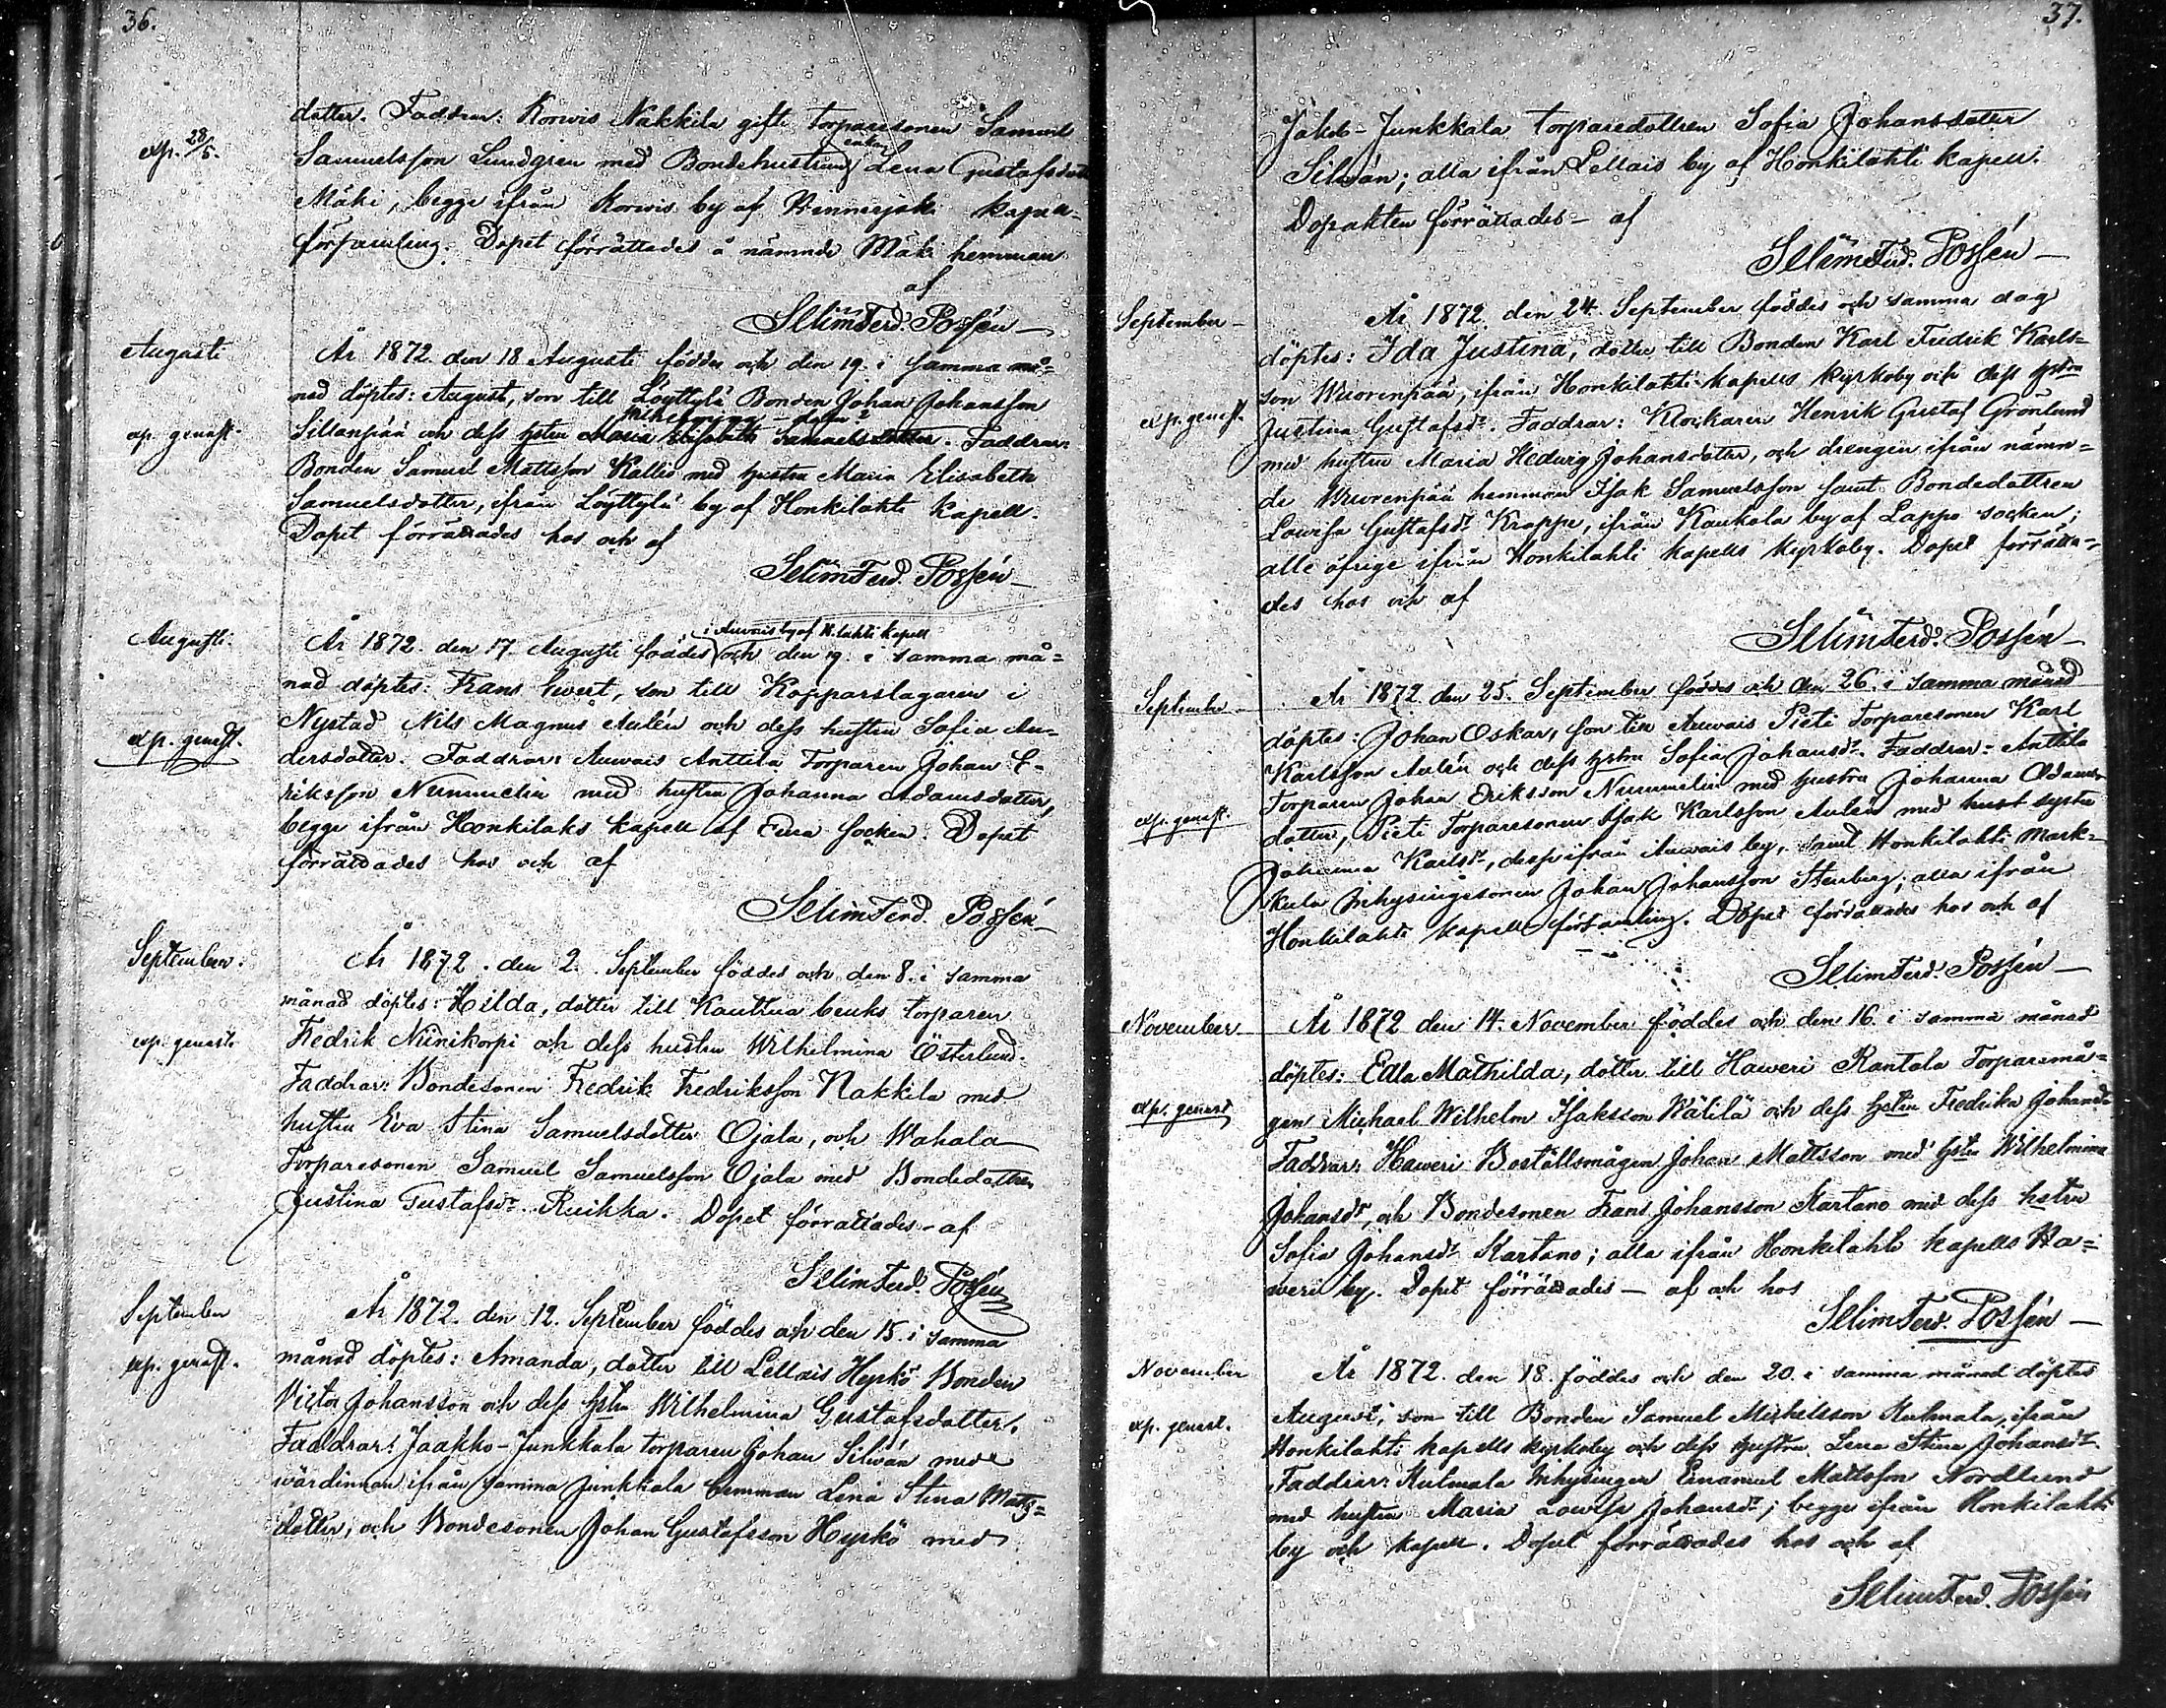 36.
dotter. Faddrar: Korwis Nakkila gifte torparesonen Samuel
exp. 28/5.
enkan
Samuelsson Lundgren med Bondehustrun Lena Gustafsdotter
Mäki, begge ifrån Korwis by af Hinnerjoki kapell-
församling. Dopet förrättades å nämnde Mäki hemman
af
Selim Ferd. Possén
Augusti
År 1872 den 18 Augusti föddes och den 19. i samma må=
nad döptes: August, son till Löyttylä Bonden Johan Johansson
Wilhelmina
exp. genast.
Sillanpää och dess hstru Maria Elisabeth Samuelsdotter. Faddrar:
Bonden Samuel Mattsson Kallio med hustru Maria Elisabeth
Samuelsdotter, ifrån Löyttylä by af Honkilahti kapell.
Dopet förrättades hos och af
Selim Ferd. Possén
i Auwais by af H.lahti kapell
Augusti.
År 1872. den 17. Augusti föddes och den 19. i samma må=
nad döptes: Frans Ewert, son till Kopparslagaren i
Nystad Nils Magnus Aulén och dess hustru Sofia An=
exp. genast.
dersdotter. Faddrar: Auwais Anttila Torparen Johan E-
riksson Nummelin med hustru Johanna Adamsdotter,
begge ifrån Honkilaks kapell af Eura socken. Dopet
förrättades hos och af
Selim Ferd. Possén
September.
År 1872. den 2. September föddes och den 8. i samma
månad döptes: Hilda, dotter till Kauttua bruks torparen
exp. genast.
Fredrik Niinikorpi och dess hustru Wilhelmina Österlund.
Faddrar: Bondesonen Fredrik Fredriksson Nakkila med
hustru Eva Stina Samuelsdotter Ojala, och Wahala
Torparesonen Samuel Samuelsson Ojala med Bondedottren
Justina Gustafsdr. Ruikka. Dopet förrättades - af
Selim Ferd. Possén
September
År 1872. den 12. September föddes och den 15. i samma
exp. genast.
månad döptes: Amanda, dotter till Lellais Hyrkö Bonden
Victor Johansson och dess hstru Wilhelmina Gustafsdotter.
Faddrar: Jaakko-Junkkala torparen Johan Silwán med
wärdinnan ifrån samma Junkkala hemman Lena Stina Matts=
dotter, och Bondesonen Johan Gustafsson Hyrkö med
37.
Jakob-Junkkala torparedottren Sofia Johansdotter
Silwán; alla ifrån Lellais by af Honkilahti kapell.
Dopakten förrättades - af
Selim Ferd. Possén
September
År 1872. den 24. September föddes och samma dag
döptes: Ida Justina, dotter till Bonden Karl Fredrik Karls=
son Wuorenpää, ifrån Honkilahti kapells kyrkoby och dess hstru
exp. genast.
Justina Gustafsdr. Faddrar: Klockaren Henrik Gustaf Grönlund
med hustru Maria Hedwig Johansdotter, och drengen ifrån nämn=
de Wuorenpää hemman Isak Samuelsson samt Bondedottren
Lowisa Gustafsdr Krappe, ifrån Kaukola by af Lappo socken;
alle öfrige ifrån Honkilahti kapells kyrkoby. Dopet förrätta=
des hos och af
Selim Ferd. Possén
September
År 1872. den 25. September föddes och den 26. i samma månad
döptes: Johan Oskar, son till Auwais Pieti Torparesonen Karl
Karlsson Aulén och dess hstru Sofia Johansdr. Faddrar: Anttila
Torparen Johan Eriksson Nummelin med hustru Johanna Adams
exp. genast.
dotter, Pieti Torparesonen Isak Karlsson Aulén med
Johanna Karlsdr, desse ifrån Auwais by, samt Honkilahti Mark=
kula Inhysingesonen Johan Johansson Stenberg; alla ifrån
Honkilahti kapellförsamling. Dopet förrättades hos och af
Selim Ferd. Possén
November
År 1872 den 14. November föddes och den 16. i samma månad
döptes: Edla Mathilda, dotter till Haweri Rantala Torparemå=
exp. genast
gen Michael Wilhelm Isaksson Wälilä och dess hstru Fredrika Johansdr
Faddrar: Haweri Boställsmågen Johan Mattsson med hstru Wilhelmina
Johansdr, och Bondesonen Frans Johansson Kartano med dess hstru
Sofia Johansdr Kartano; alla ifrån Honkilahti kapells Ha=
weri by. Dopet förrättades - af och hos
Selim Ferd. Possén
November
År 1872. den 18. föddes och den 20. i samma månad döptes
exp. genast.
August, son till Bonden Samuel Mickelsson Kulmala, ifrån
Honkilahti kapells kyrkoby och dess hustru Lena Stina Johansdr
Faddrar: Kulmala Inhysingen Emanuel Mattsson Nordlund
med hustru Maria Lowisa Johansdr; begge ifrån Honkilahti
by och kapell. Dopet förrättades hos och af
Selim Ferd. Possén